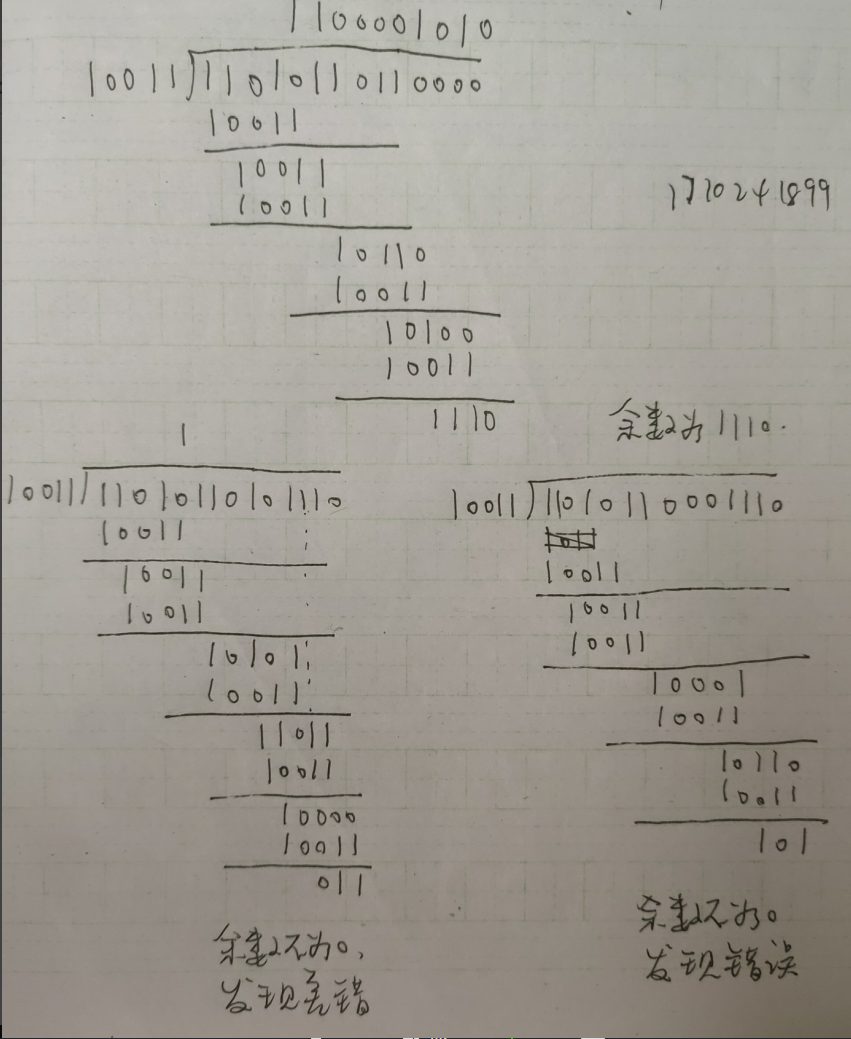 1100001010
10011 11010110110000
10011
10011
10011
1710241899
10110
10011
10100
10011
1110
余数为1110.
1
10011 11010110101110
10011
10011
10011
10101
10011
11011
10011
10000
10011
011
余数不为0,
发现差错
10011 11010110001110
10011
10011
10011
10001
10011
10110
10011
101
余数不为0
发现错误